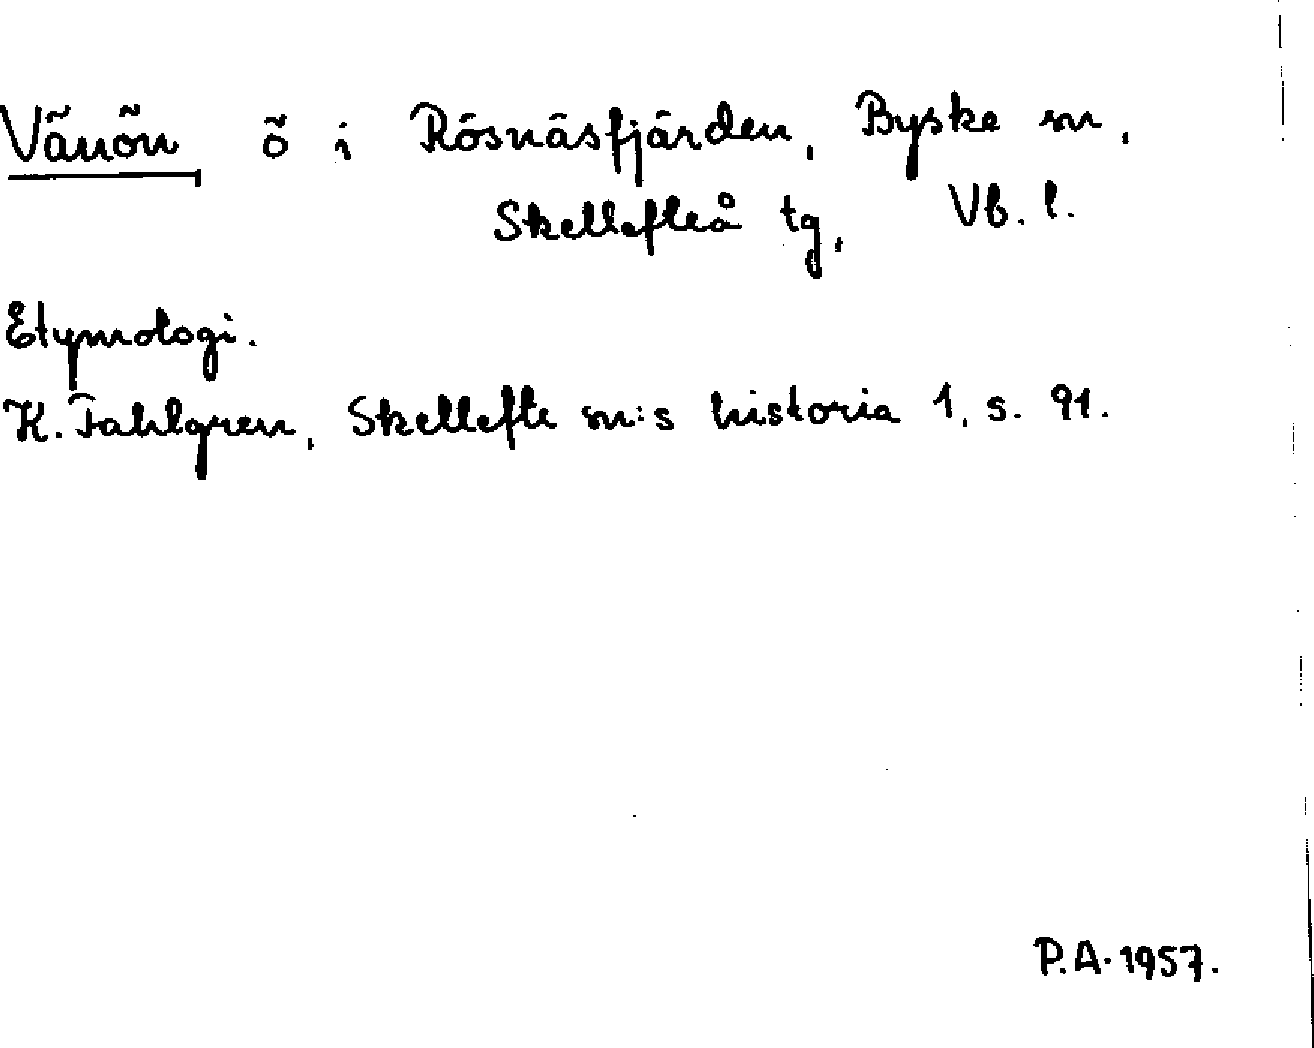 Vänön, ö i Rösnäsfjärden, Byske sn,
Skellefteå tg, Vb. l.
Etymologi.
K. Fahlgren, Skellefte sn:s historia 1, s. 91.
P.A. 1957.